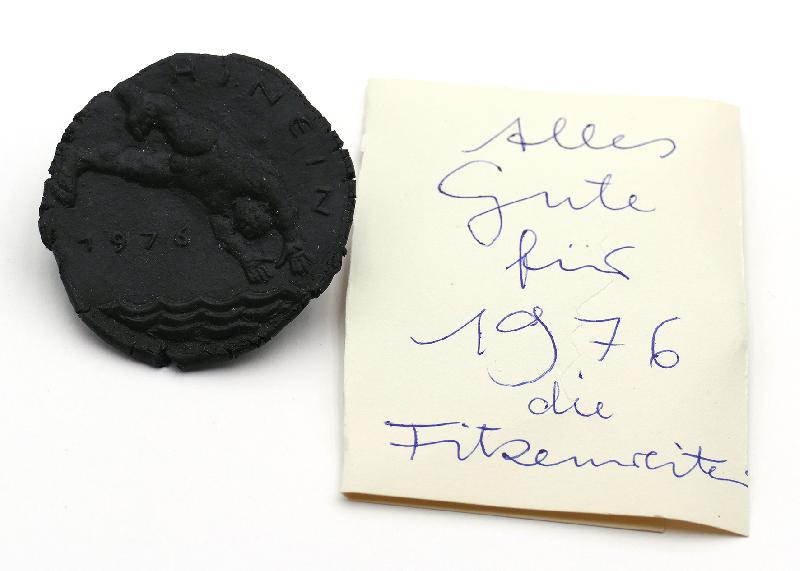 HINEIN
1976
Alles
Gute
für
1976
die
Fitzenreiter